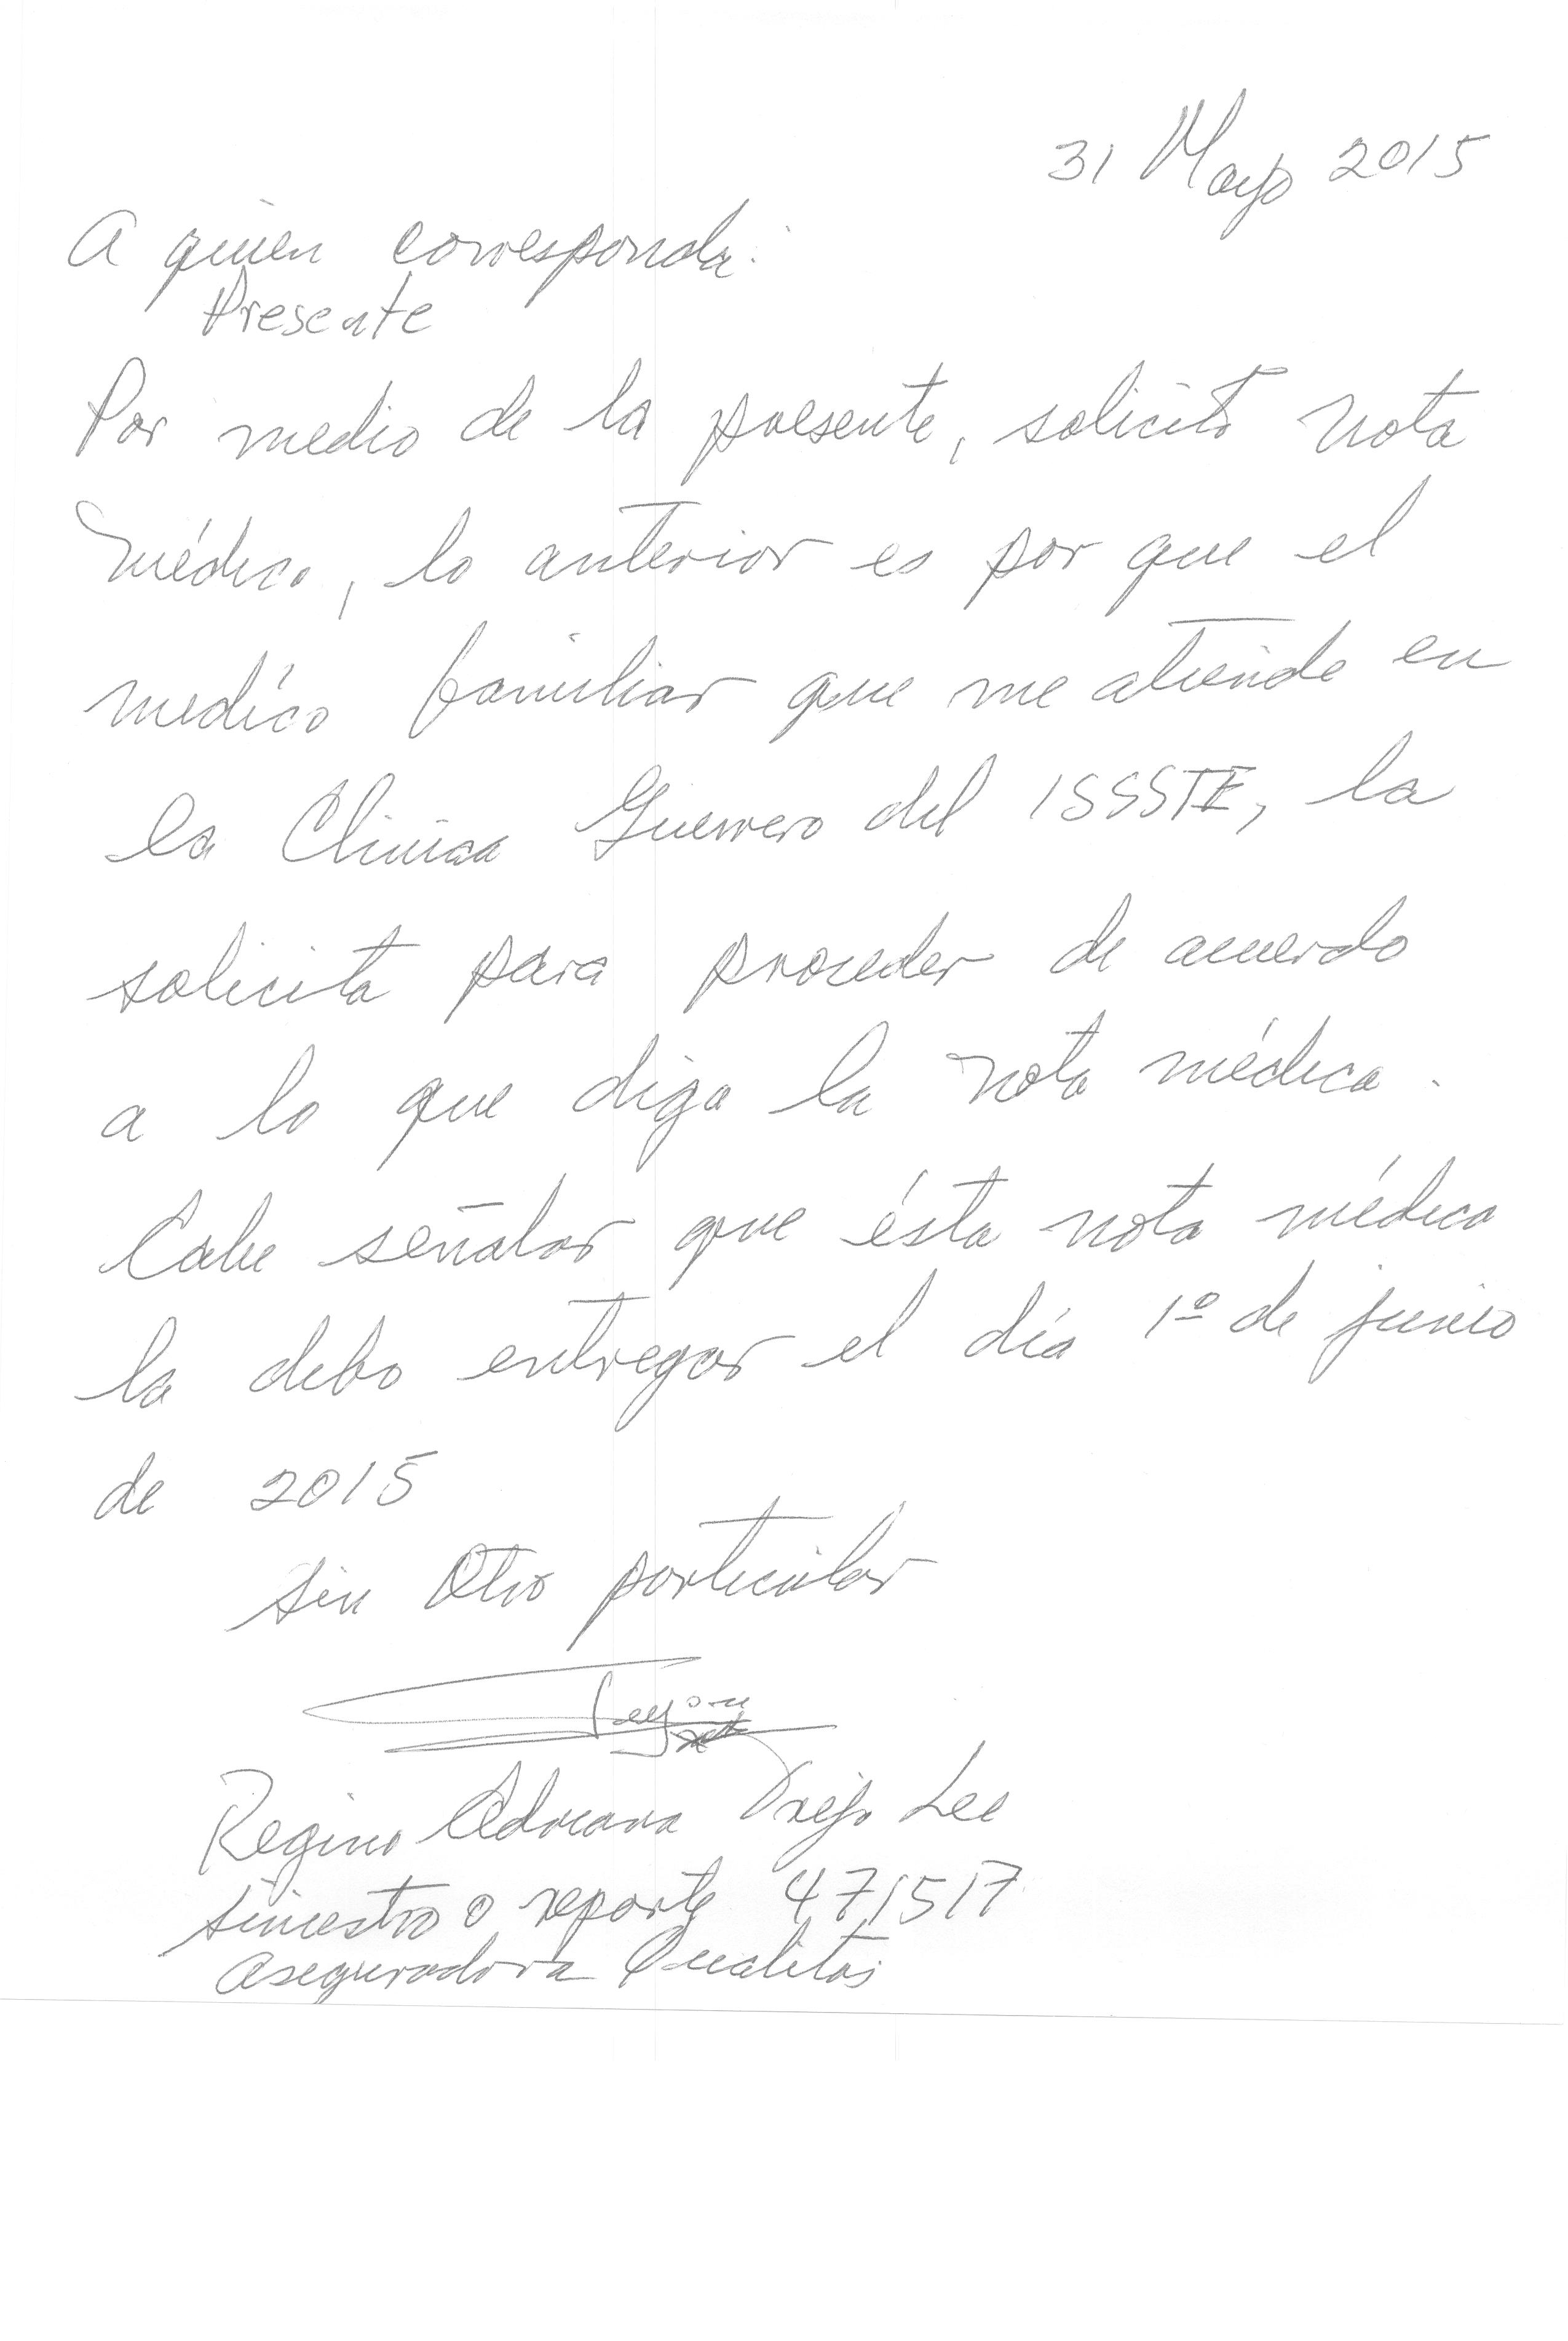 31 Mayo 2015
A quien corresponda:
Presente
Por medio de la presente, solicito nota
médica, lo anterior es por que el
medíco familiar que me atiende en
la Clinica Guerrero del ISSSTE, la
solicita para proceder de acuerdo
a lo que diga la nota médica.
Cabe señalar que ésta nota médica
la debo entregar el día 1º de junio
de 2015
Sin Otro particular
Regina Adriana Trejo Lee
siniestro o reporte 471517
aseguradora Qualitas